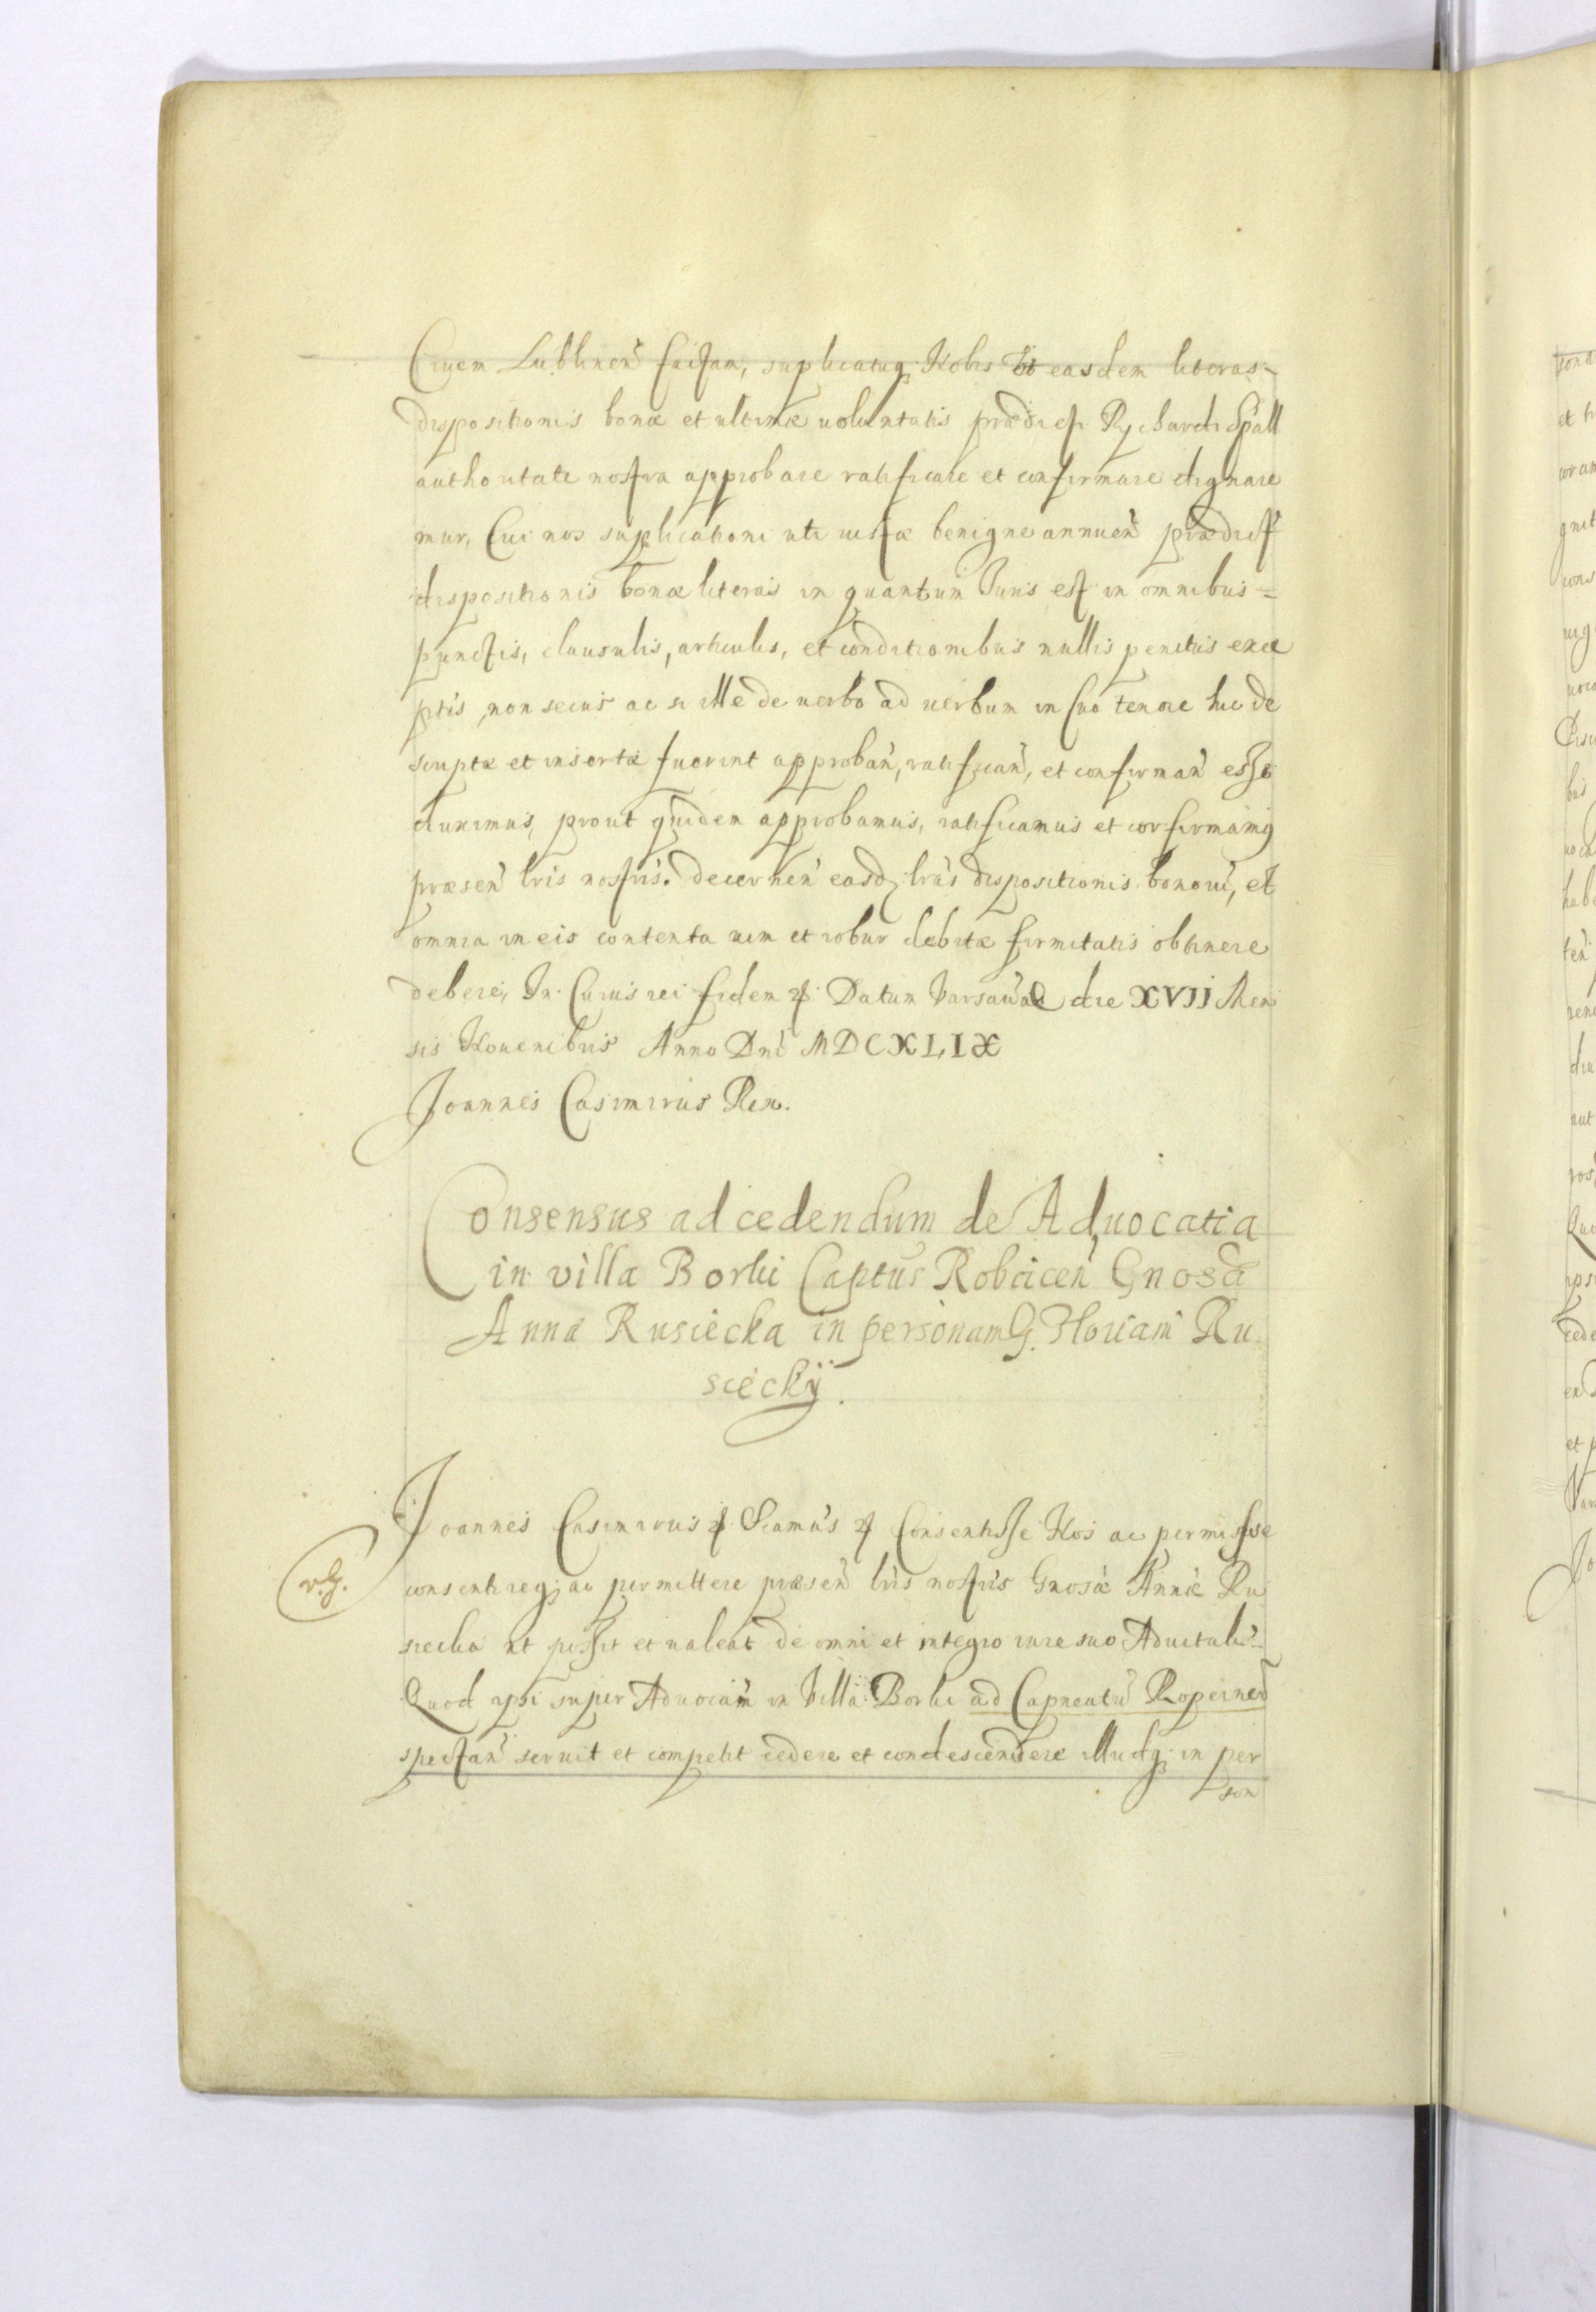 Ciuem Lublinen̄ factam, suplicatuq; Nobis ut easdem literas
dispositionis bonæ et ultimæ uoluntatis prædicti Rychardi Spall
authoritate nostra approbare ratificare et confirmare dignare
mur, Cui nos suplicationi uti iustæ benigne annuen̄ prædict
dispositionis bonæ literas in quantum Juris est in omnibus =
punctis, clausulis, articulis, et conditionibus nullis penitus exce
ptis, non secus ac si illæ de uerbo ad uerbum in suo tenore hic de
scriptæ et insertæ fuerint approban̄, ratifican̄, et confirman̄ esse
duximus, prout quidem approbamus, ratificamus et confirmamq
præsen̄ lris nostris. decernen̄ easdq lras dispositionis bonoru̅, et
omnia in eis contenta uim et robur debitæ firmitatis obtinere
debere, In Cuius rei fidem Datum Varsauiæ die XVII Men
sis Nouembris Anno Dni MDCXLIX
Joannes Casimirus Rex.
Consensus ad cedendum de Aduocatia
in villa Borki Captus Robcicen̄ Gnosa
Anna Rusiecka in personam G. Floriani Ru
siecky.
Joannes Casimirus Sciamus Consentisse Nos ac permisisse
v. G.
consentireq; ac permittere præsen̄ lris nostris Gnosæ Annæ Ru
siecka ut possit et ualeat de omni et integro iure suo Aduitali
Quod ipsi super Aduociam in Villa Borki ad Capneatu̅ Ropcinen̄
spectan̄ seruit et competit cedere et condescendere illudq; in per
son